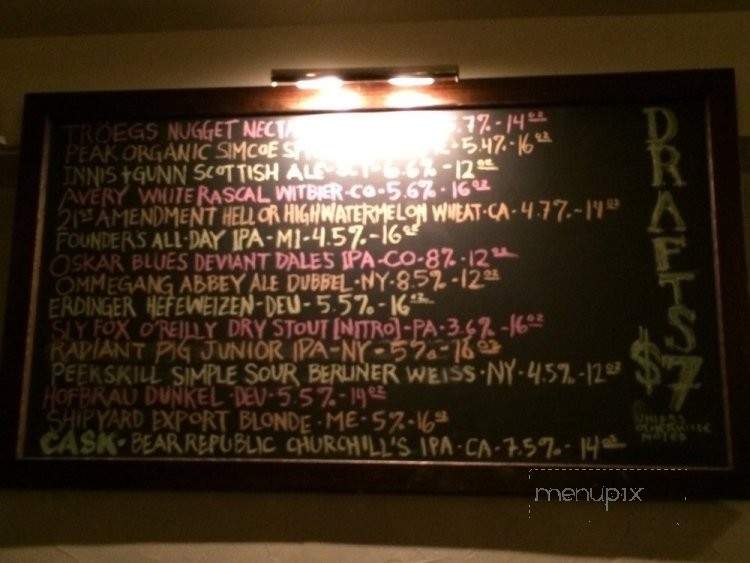 TROEGS NUGGET .7% - 14oz
PEAK ORGANIC SIMCOE - 5.4% - 16oz
INNIS + GUNN SCOTTISH ALE - 6.6% - 12oz
AVERY WHITE RASCAL WITBIER - CO - 5.6% - 16oz
21st AMENDMENT HELL OR HIGH WATERMELON WHEAT - CA - 4.77% - 14oz
FOUNDERS ALL-DAY IPA - MI - 4.5% - 16oz
OSKAR BLUES DEVIANT DALES IPA - CO - 8% - 12oz
OMMEGANG ABBEY ALE DUBBEL - NY - 8.5% - 12oz
ERDINGER HEFEWEIZEN - DEU - 5.5% - 16oz
SLY FOX O'REILLY DRY STOUT [NITRO] - PA - 3.6% - 16oz
RADIANT PIG JUNIOR IPA - NY - 5% - 16oz
PEEKSKILL SIMPLE SOUR BERLINER WEISS - NY - 4.5% - 12oz
HOFBRAU DUNKEL - DEU - 5.5% - 14oz
SHIPYARD EXPORT BLONDE - ME - 5% - 16oz
CASK - BEAR REPUBLIC CHURCHILL'S IPA - CA - 7.5% - 14oz
DRAFTS
$7
UNLESS
OTHERWISE
NOTED
menupix